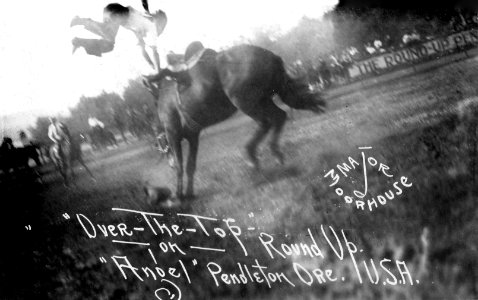 THE ROUND-UP PEN
MAJOR
MOORHOUSE
"Over-The-Top-"
on
Round Up.
"Angel" Pendleton Ore. U.S.A.